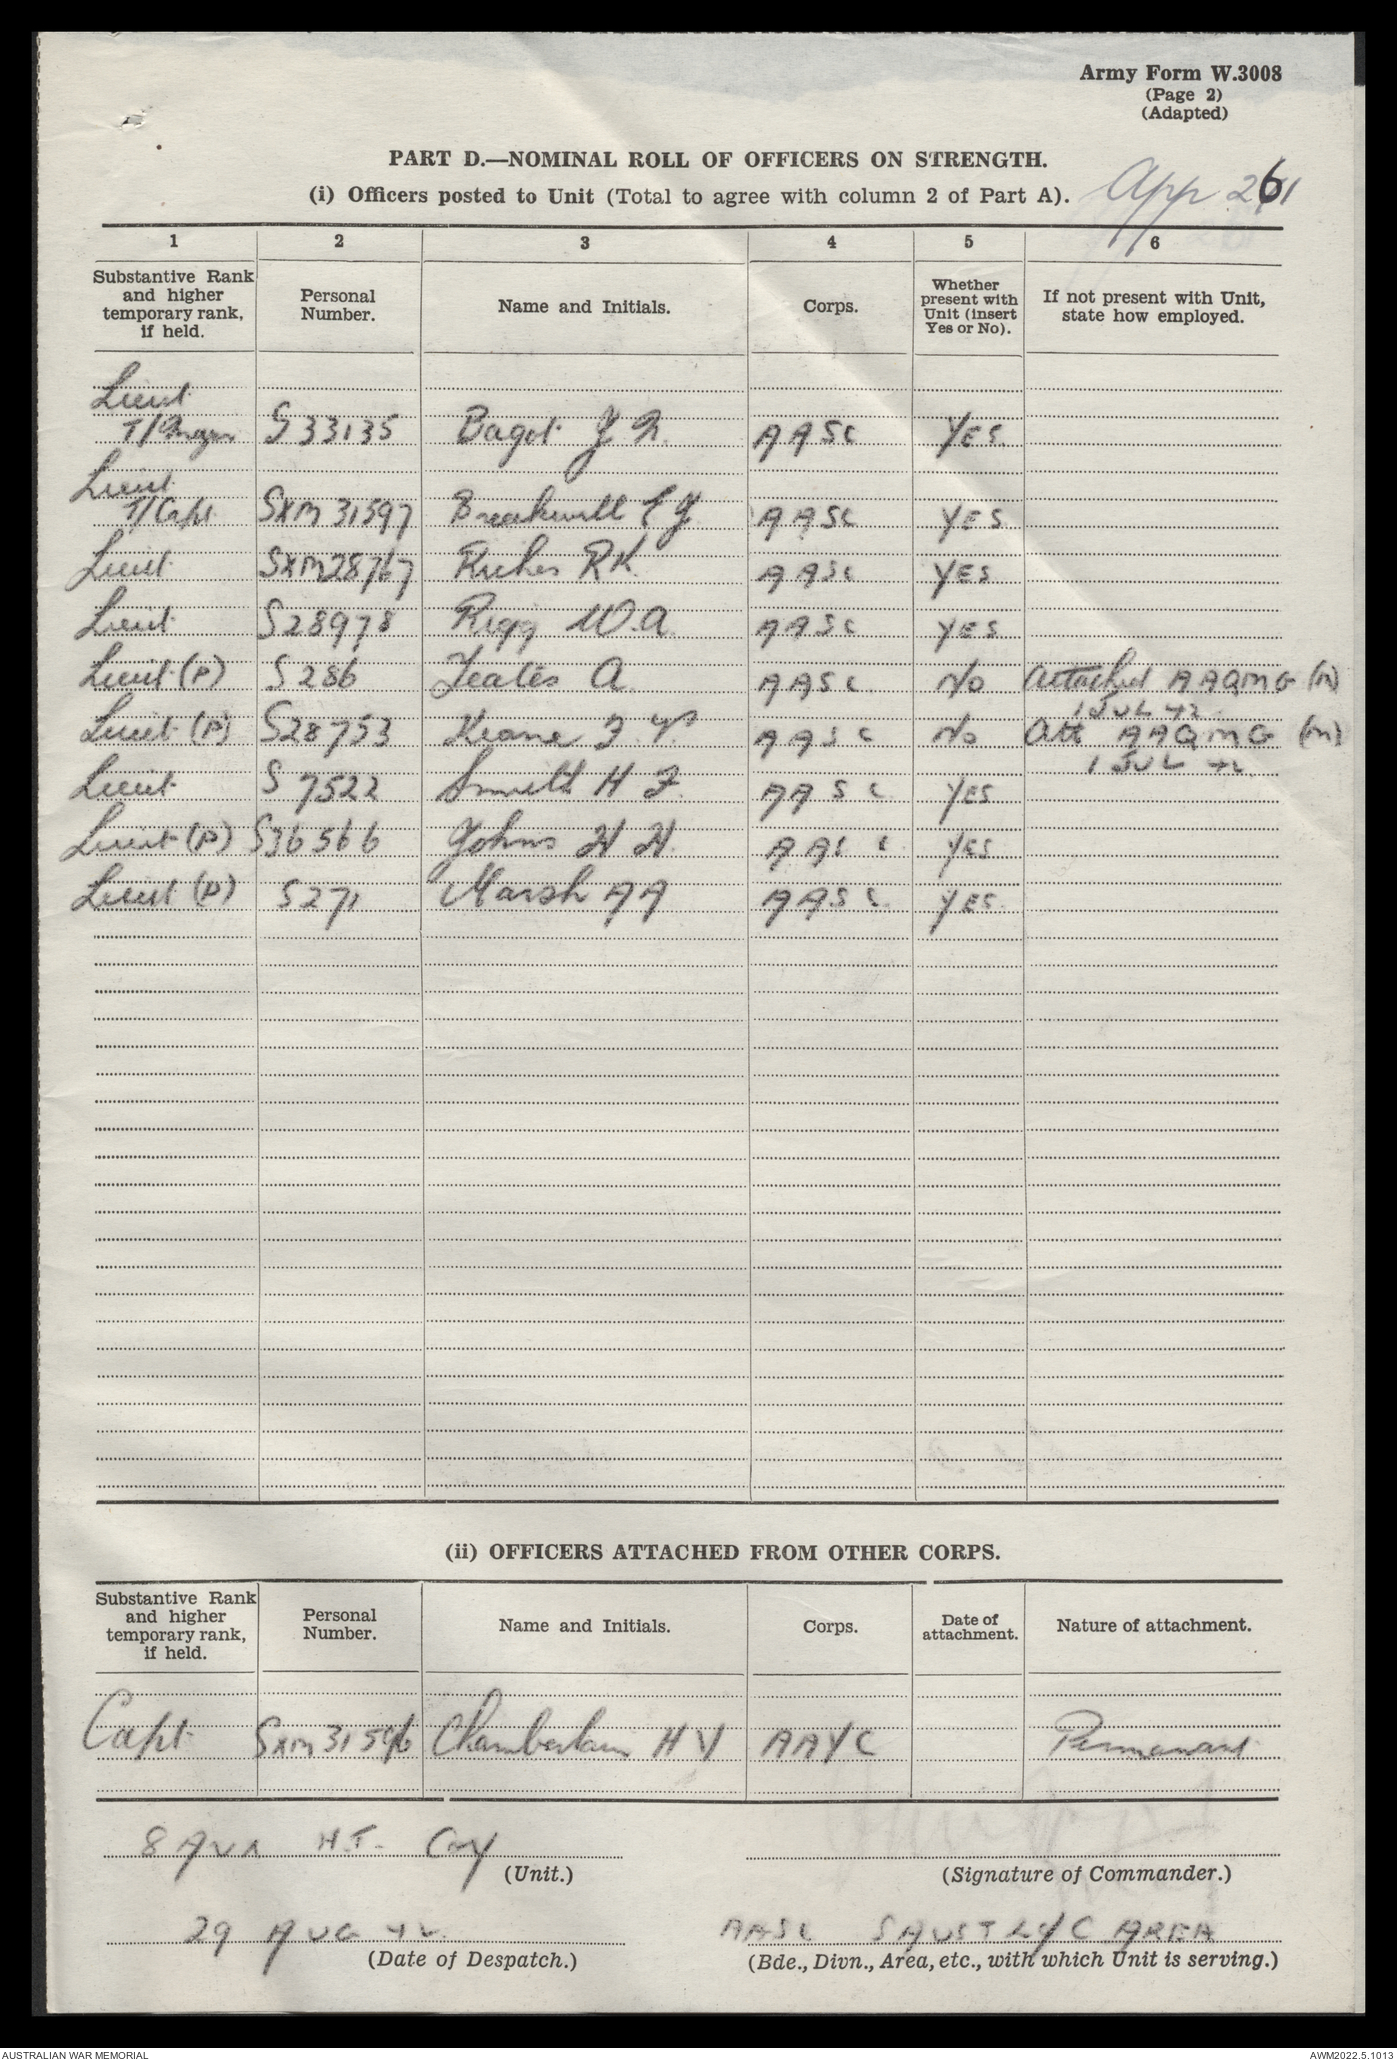 Army Form W.3008
(Page 2)
(Adapted)
PART D.—NOMINAL ROLL OF OFFICERS ON STRENGTH.
(i) Officers posted to Unit (Total to agree with column 2 of Part A).
App 261
1 2 3 4 5 6
Substantive Rank and higher temporary rank, if held. Personal Number. Name and Initials. Corps. Whether present with Unit (insert Yes or No). If not present with Unit, state how employed.
Lieut
T/Major S33135 Bagot AASC YES
Lieut
T/Capt SXM 31597 Breakwell AASC YES
Lieut SXM28767 Riches RK AASC YES
Lieut S28978 Rigg W.A. AASC YES
Lieut (P) S286 Yeates A AASC No Attached AAQMG (M)
1 JUL 42
Lieut (P) S28753 Keane AASC No Att AAQMG (M)
1 JUL 42
Lieut S7522 Smith H F. AASC YES
Lieut (P) S36566 Johns H H. AASC YES
Lieut (P) S271 Marsh AA AASC YES
(ii) OFFICERS ATTACHED FROM OTHER CORPS.
Substantive Rank and higher temporary rank, if held. Personal Number. Name and Initials. Corps. Date of attachment. Nature of attachment.
Capt SXM 31596 Chamberlain H V AAVC Permanant
8 Aus H.T. Coy
(Unit.)
(Signature of Commander.)
29 AUG 42
(Date of Despatch.)
AASC S AUST L/C AREA
(Bde., Divn., Area, etc., with which Unit is serving.)
AUSTRALIAN WAR MEMORIAL
AWM2022.5.1013